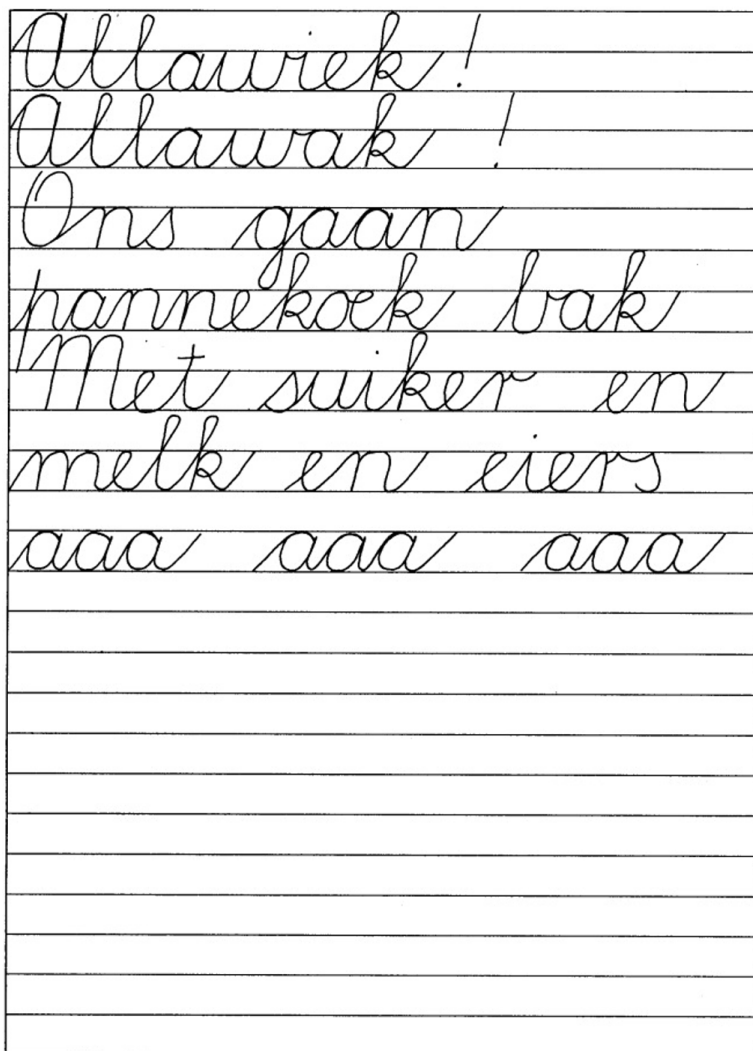 Allawiek!
Allawak !
Ons gaan
pannekoek bak
Met suiker en
melk en eiers
aaa aaa aaa